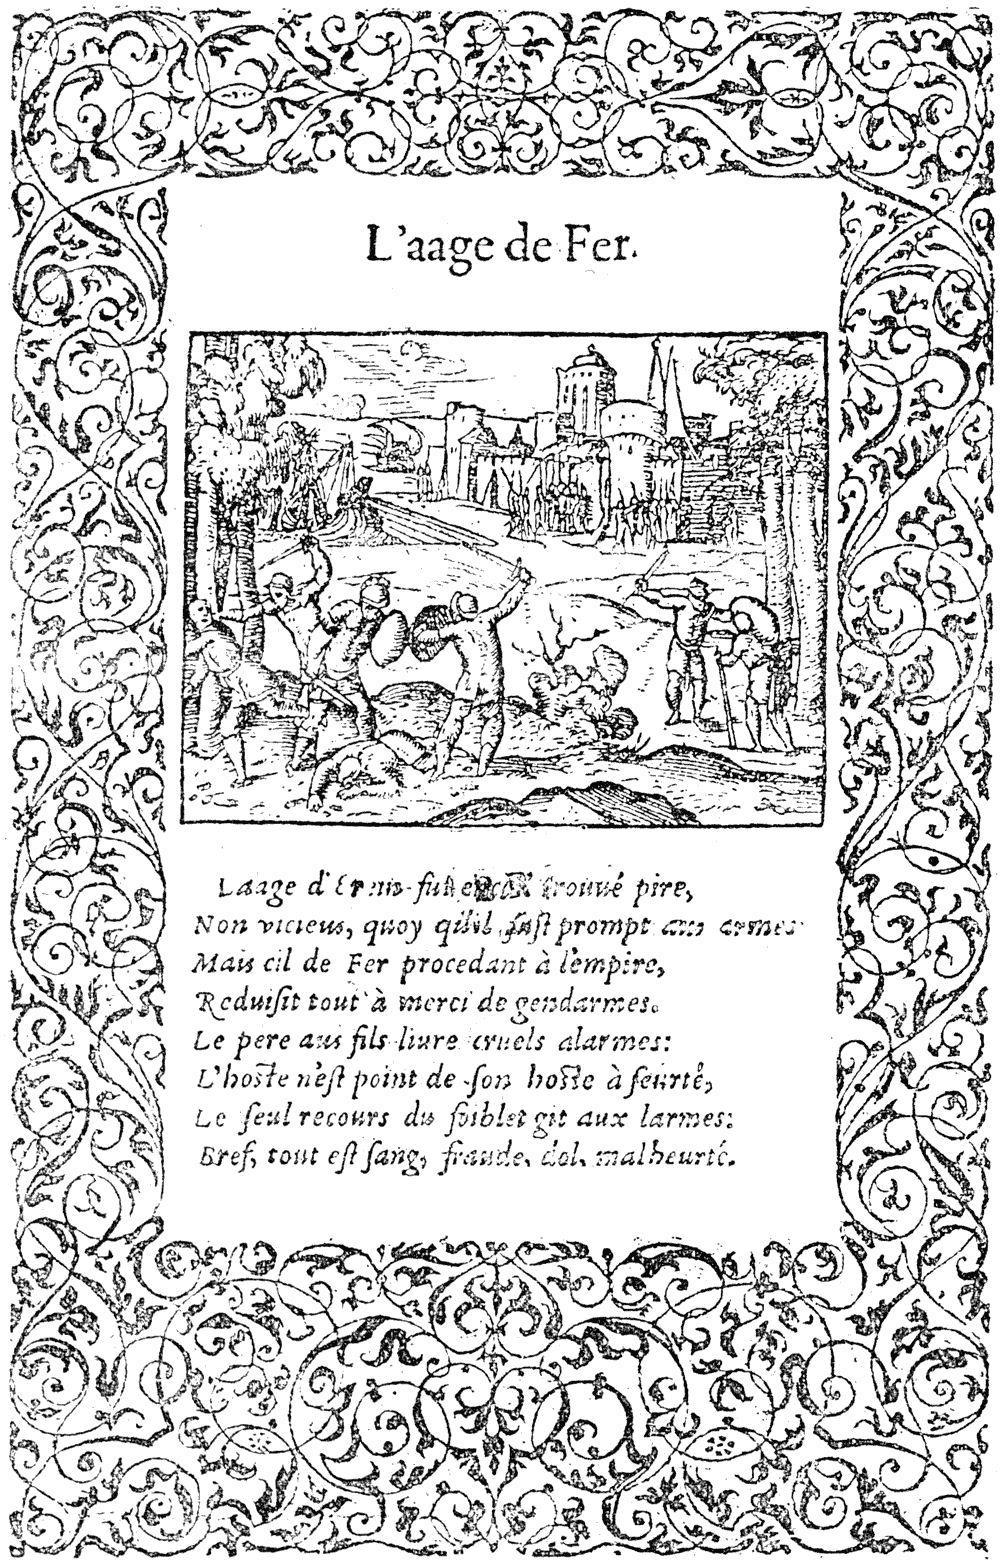 L'aage de Fer.
Laage d'Erain fut encor trouué pire,
Non vicieus, quoy qu'il fust prompt aus armes
Mais cil de Fer procedant à l'empire,
Reduiſit tout à merci de gendarmes.
Le pere aus fils liure cruels alarmes:
L'hoſte n'eſt point de ſon hoſte à ſeurté,
Le ſeul recours du foiblet git aux larmes:
Bref, tout eſt ſang, fraude, dol, malheurté.